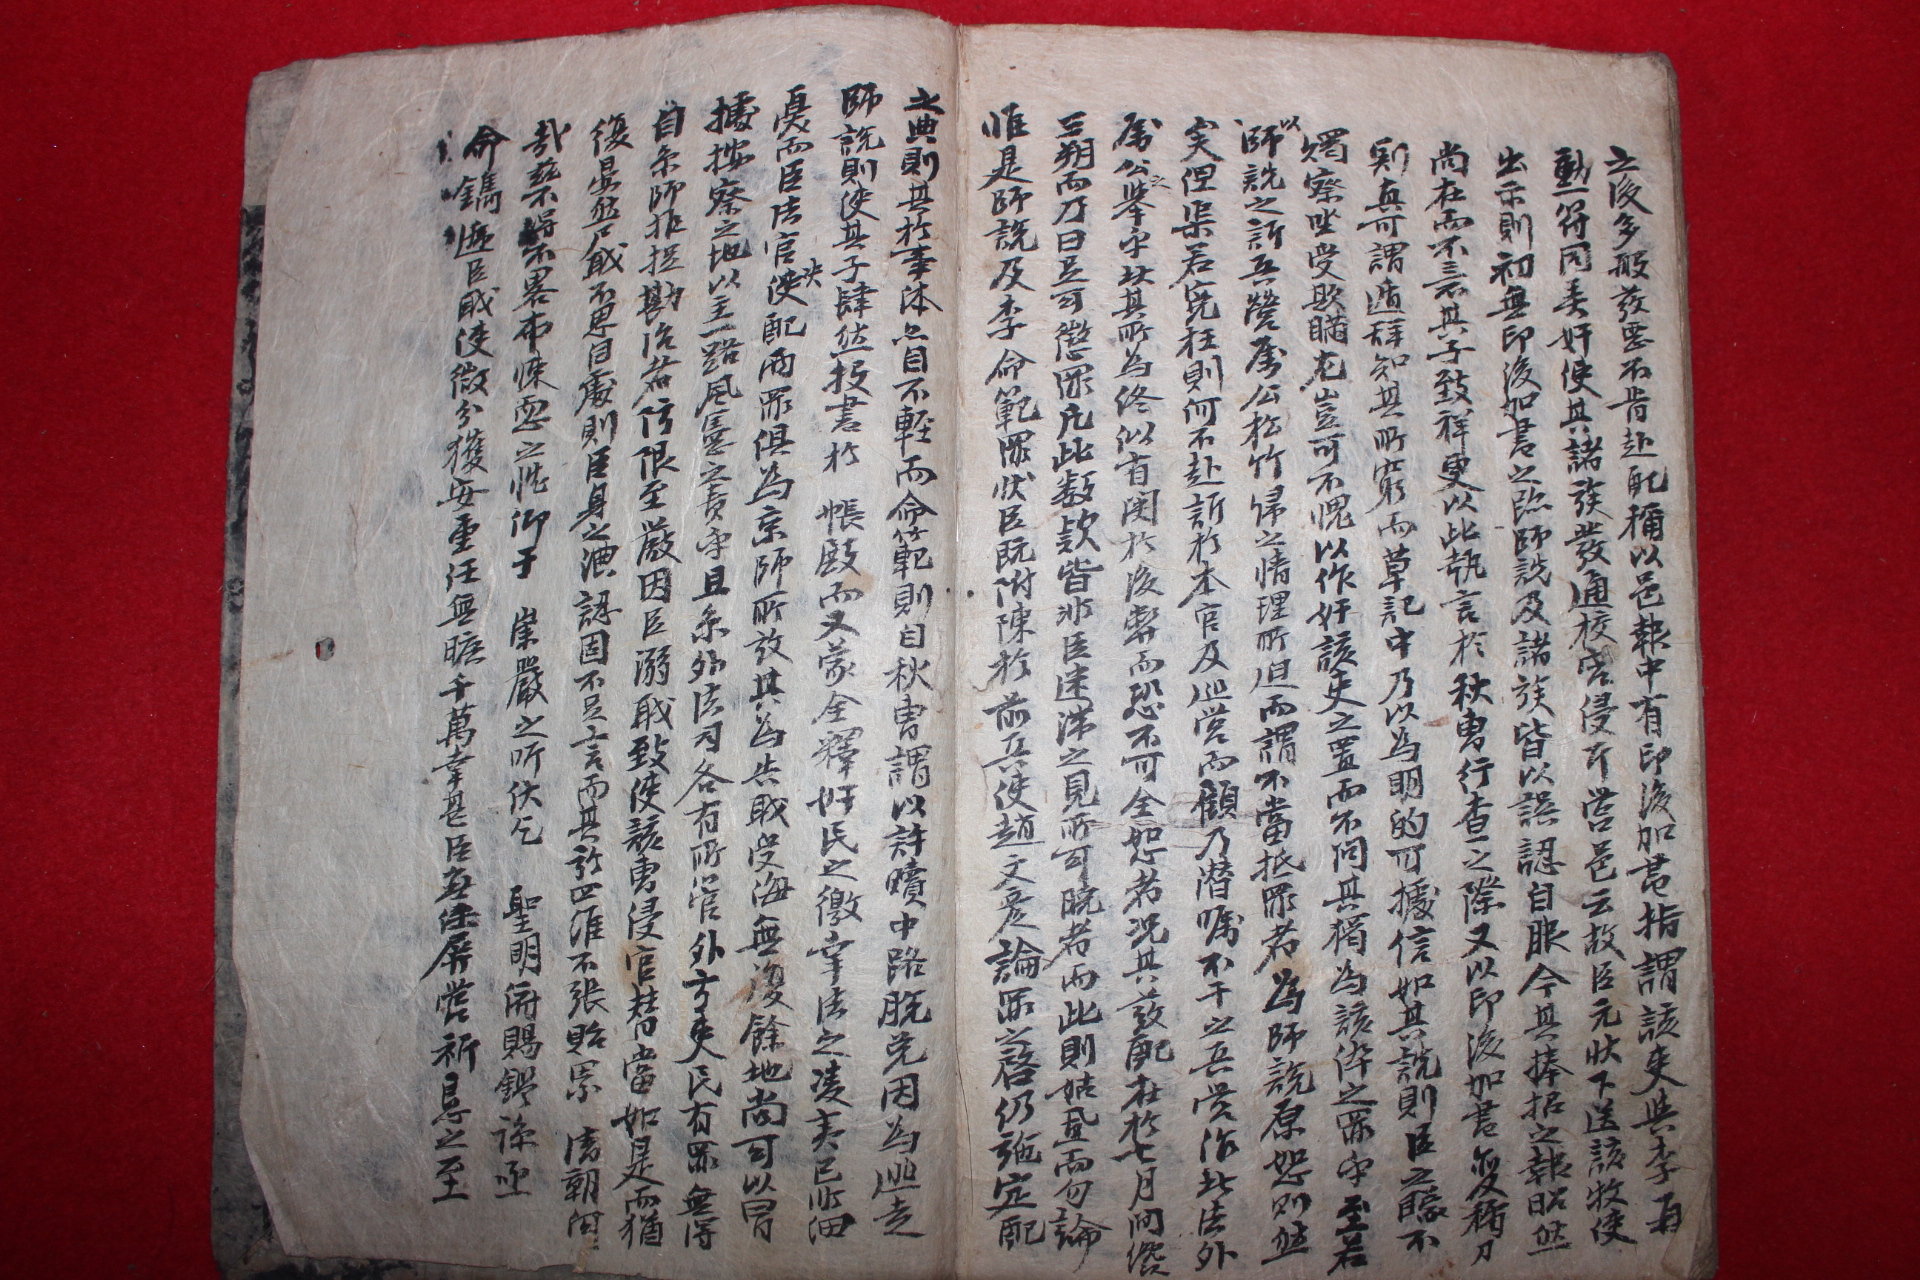 之後多般發惡不肯赴配稱以邑報中有印後加書指謂該吏與李
動符同奸使其諸族發通校宮侵斥營邑云故臣元狀下送該牧使
出示則初無印後加書之臨師說及諸族皆以誤認自服今其捧招之報昭然
尚在而不意其子致祥更以此執言於秋曹行查之際又以印後加書變稱刀
則真可謂遁辭知其所窮而草記中乃以爲明的可據信如其說則臣之矇不
燭察坐受欺瞞尤豈可不愧以作奸該吏之置而不問其獨爲該倅之罪乎至若
以師說之訴兵營屬公松竹歸之情理所迫而謂不當抵罪者爲師說原恕則然
矣但渠若寃枉則何不赴訴於本官及巡營而顧乃潛囑不干之兵營渻此法外
屬公之擧乎此其所爲終似有関於後弊而恐不可全恕者況其發配在於七月間纔
三朔而乃曰足可懲罪凡此數款皆非臣迷滯之見所可曉者而此則姑置而勿論
惟是師說及李命範罪狀臣既附陳於前兵使趙文彦論罪之啓仍施定配
之典則其於事體亦自不輕而命範則自秋曹謂以許贖中路脫免因爲逃走
師說則使其子肆然投書於 帳殿而又蒙全釋奸民之徼幸法之凌夷已非細
憂而臣法官決配兩罪俱爲京師所放其爲失職受侮無復餘地尚可以冒
據按察之地以主一路風憲之責乎且京外法司各有所管外方吏民有罪無得
自京師推捉勘治者所限至嚴因臣溺職致使該曹侵官替當如是而猶
復晏然尸職不思自處則臣身之洏認固不足言而其於四維不張貽累 淸朝何
哉玆不得不畧布悚恧之忱仰于 崇嚴之听伏乞 聖明府賜鑑諒亟
命鐫遞臣職使微分獲安重任無曠千萬幸甚臣無任屏營祈懇之至